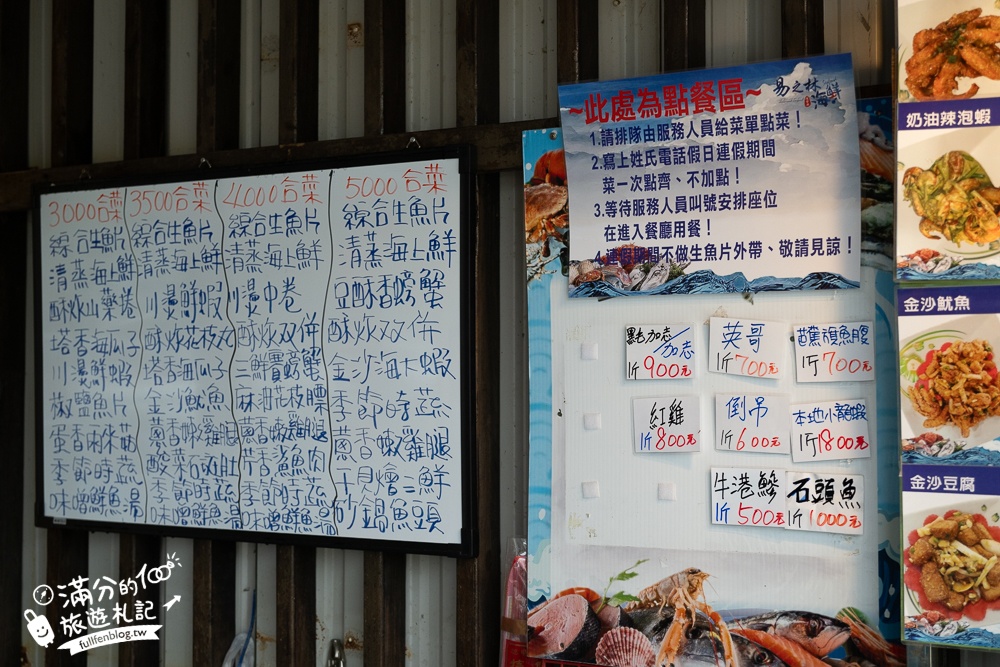 3000合菜
綜合生魚片
清蒸海上鮮
酥炊山藥捲
塔香海瓜子
川燙鮮蝦
椒鹽魚片
季節時蔬
味噌鮮魚湯
3500合菜
綜合生魚片
清蒸海上鮮
川燙鮮蝦
酥炊花枝丸
塔香海瓜子
金沙魷魚
蔥香嫩雞腿
季節時蔬
味噌鮮魚湯
4000合菜
綜合生魚片
清蒸海上鮮
川燙中卷
酥炊双併
麻油花枝腰
蔥香嫩雞腿
季節時蔬
味噌鮮魚湯
5000合菜
綜合生魚片
清蒸海上鮮
豆酥香螃蟹
酥炊双併
金沙海大蝦
季節時蔬
蔥香嫩雞腿
干貝燴三鮮
砂鍋魚頭
易之林
海鮮
~此處為點餐區~
1.請排隊由服務人員給菜單點菜!
2.寫上姓氏電話假日連假期間
菜一次點齊、不加點!
3.等待服務人員叫號安排座位
在進入餐廳用餐!
4.連假期間不做生魚片外帶、敬請見諒!
黑毛加志/加志
1斤900元
英哥
1斤700元
1斤700元
紅雞
1斤800元
倒吊
1斤600元
本地小龍蝦
1斤1800元
牛港鰺
1斤500元
石頭魚
1斤1000元
奶油辣泡蝦
金沙魷魚
金沙豆腐
滿分的
旅遊札記
fullfenblog.tw